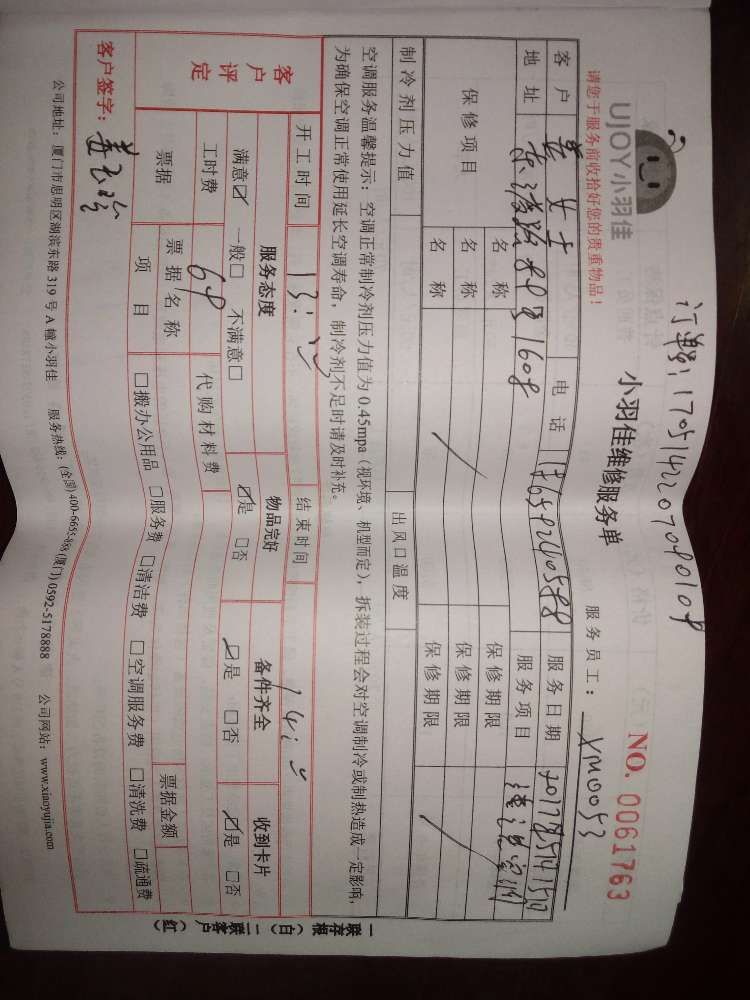 订单号:1705142207090109
UJOY小羽佳
小羽佳维修服务单
NO. 0061763
请您于服务前收拾好您的贵重物品!
服务员工: XM0053
客户 姜女士 电话 服务日期
地址 服务项目
保修项目 名称 保修期限
名称 保修期限
名称 保修期限
制冷剂压力值 出风口温度
空调服务温馨提示:空调正常制冷剂压力值为 0.45mpa(视环境、机型而定),拆装过程会对空调制冷或制热造成一定影响,
为确保空调正常使用延长空调寿命,制冷剂不足时请及时补充。
开工时间 结束时间
客户评定 服务态度 物品完好 备件齐全 收到卡片
满意☑ 一般□ 不满意□ ☑是 □否 ☑是 □否 ☑是 □否
工时费 代购材料费
票据 票据名称 票据金额
项目 □搬办公用品 □服务费 □清洁费 □空调服务费 □清洗费 □疏通费
客户签字:
公司地址:厦门市思明区湖滨东路 319 号 A 幢小羽佳 服务热线:(全国)400-6655-868 (厦门)0592-5178888 公司网站:www.xiaoyujia.com
一联存根(白) 二联客户(红)